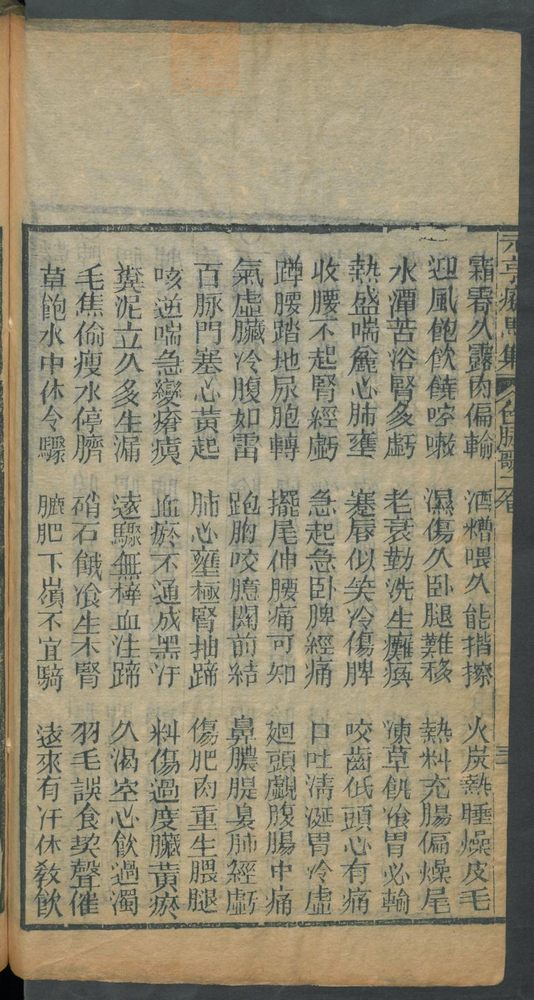 元亨療馬集 色脉歌 一卷 三
霜春久露肉偏輸 酒糟喂久能揩擦 火炭熱睡燥皮毛
迎風飽飲饒啌嗽 濕傷久卧腿難移 熱料充腸偏燥尾
水潭苦浴腎多虧 老衰勤洗生癱瘓 凍草飢飡胃必輸
熱盛喘麄心肺壅 蹇唇似笑冷傷脾 咬齒低頭心有痛
收腰不起腎經虧 急起急卧脾經痛 口吐清涎胃冷虛
蹲腰踏地尿胞轉 擺尾伸腰痛可知 廻頭覷腹腸中痛
氣虛臟冷腹如雷 跑胸咬臆闗前結 鼻膿腥臭肺經虧
百脉門塞心黃起 肺心壅極腎抽蹄 傷肥肉重生腲腿
咳逆喘急變瘠瘓 血瘀不通成黑汙 料傷過度臟黃瘀
糞泥立久多生漏 遠驟無樁血注蹄 久渴空心飲過濁
毛焦偷瘦水停臍 硝石餓飡生木腎 羽毛誤食契聲催
草飽水中休令驟 臕肥下嶺不宜騎 遠來有汗休敎飲